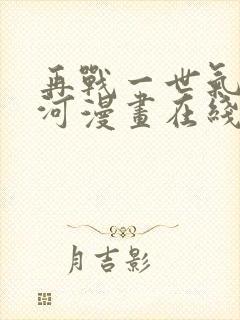 再戰一世氣
河漫畫在綫
月吉影